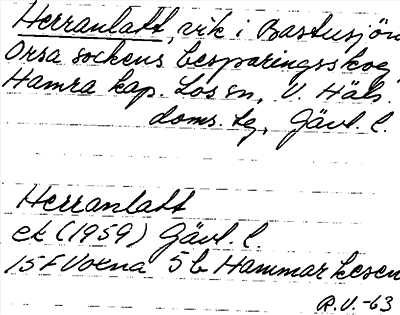 Herranlatt, vik i Bastusjön
Orsa sockens besparingsskog
Hamra kap. Los sn, V. Häls.
doms. tg, Gävl. l.
Herranlatt
ek (1959) Gävl. l.
15F Voxna 5b Hammarkesen
R.V. -63